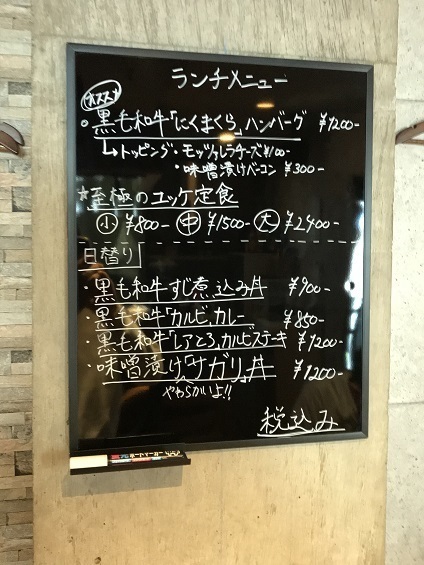 ランチメニュー
オススメ
・黒毛和牛「にくまくら」ハンバーグ ¥1200-
トッピング・モッツァレラチーズ¥100-
・味噌漬けベーコン ¥300-
☆至極のユッケ定食
小 ¥800- 中 ¥1500- 大 ¥2400-
日替り
・黒毛和牛すじ煮込み丼 ¥900-
・黒毛和牛「カルビ」カレー ¥850-
・黒毛和牛「レアとろ」カルビステーキ ¥1200-
・味噌漬け「サガリ」丼 ¥1200-
やわらかいよ!!
税込み